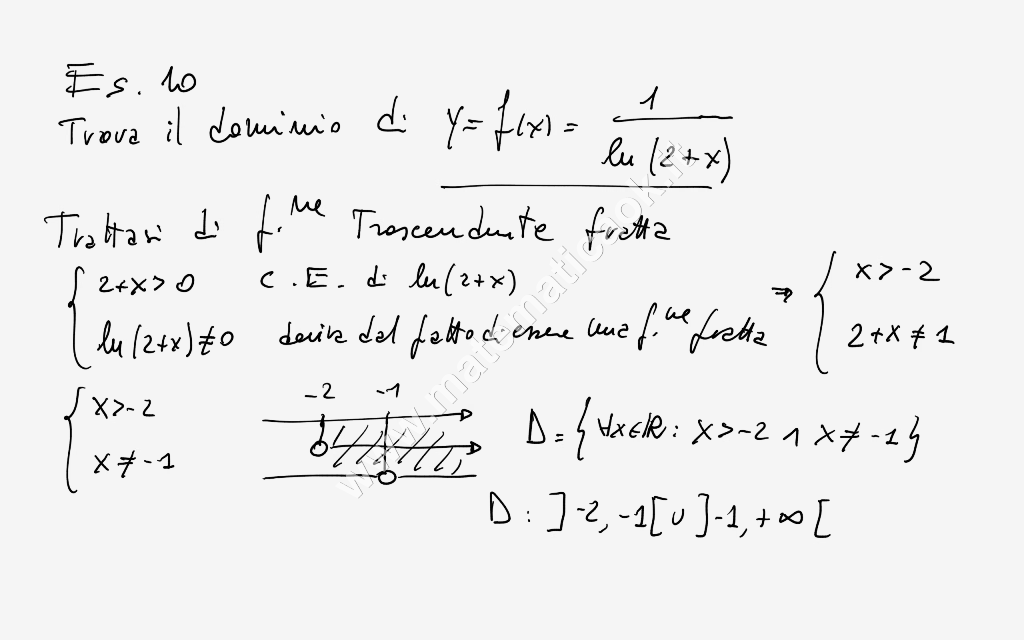 Es. 10
Trova il dominio di y = f(x) = 1 / ln (2+x)
Trattasi di f.ne Trascendente fratta
{ 2+x > 0 C.E. di ln (2+x) ⇒ { x > -2
ln (2+x) ≠ 0 deriva dal fatto di essere una f.ne fratta 2+x ≠ 1
{ x > -2 -2 -1
x ≠ -1 D = { ∀x∈ℝ : x > -2 ∧ x ≠ -1 }
D : ]-2, -1[ ∪ ]-1, +∞ [
www.matematicaok.it